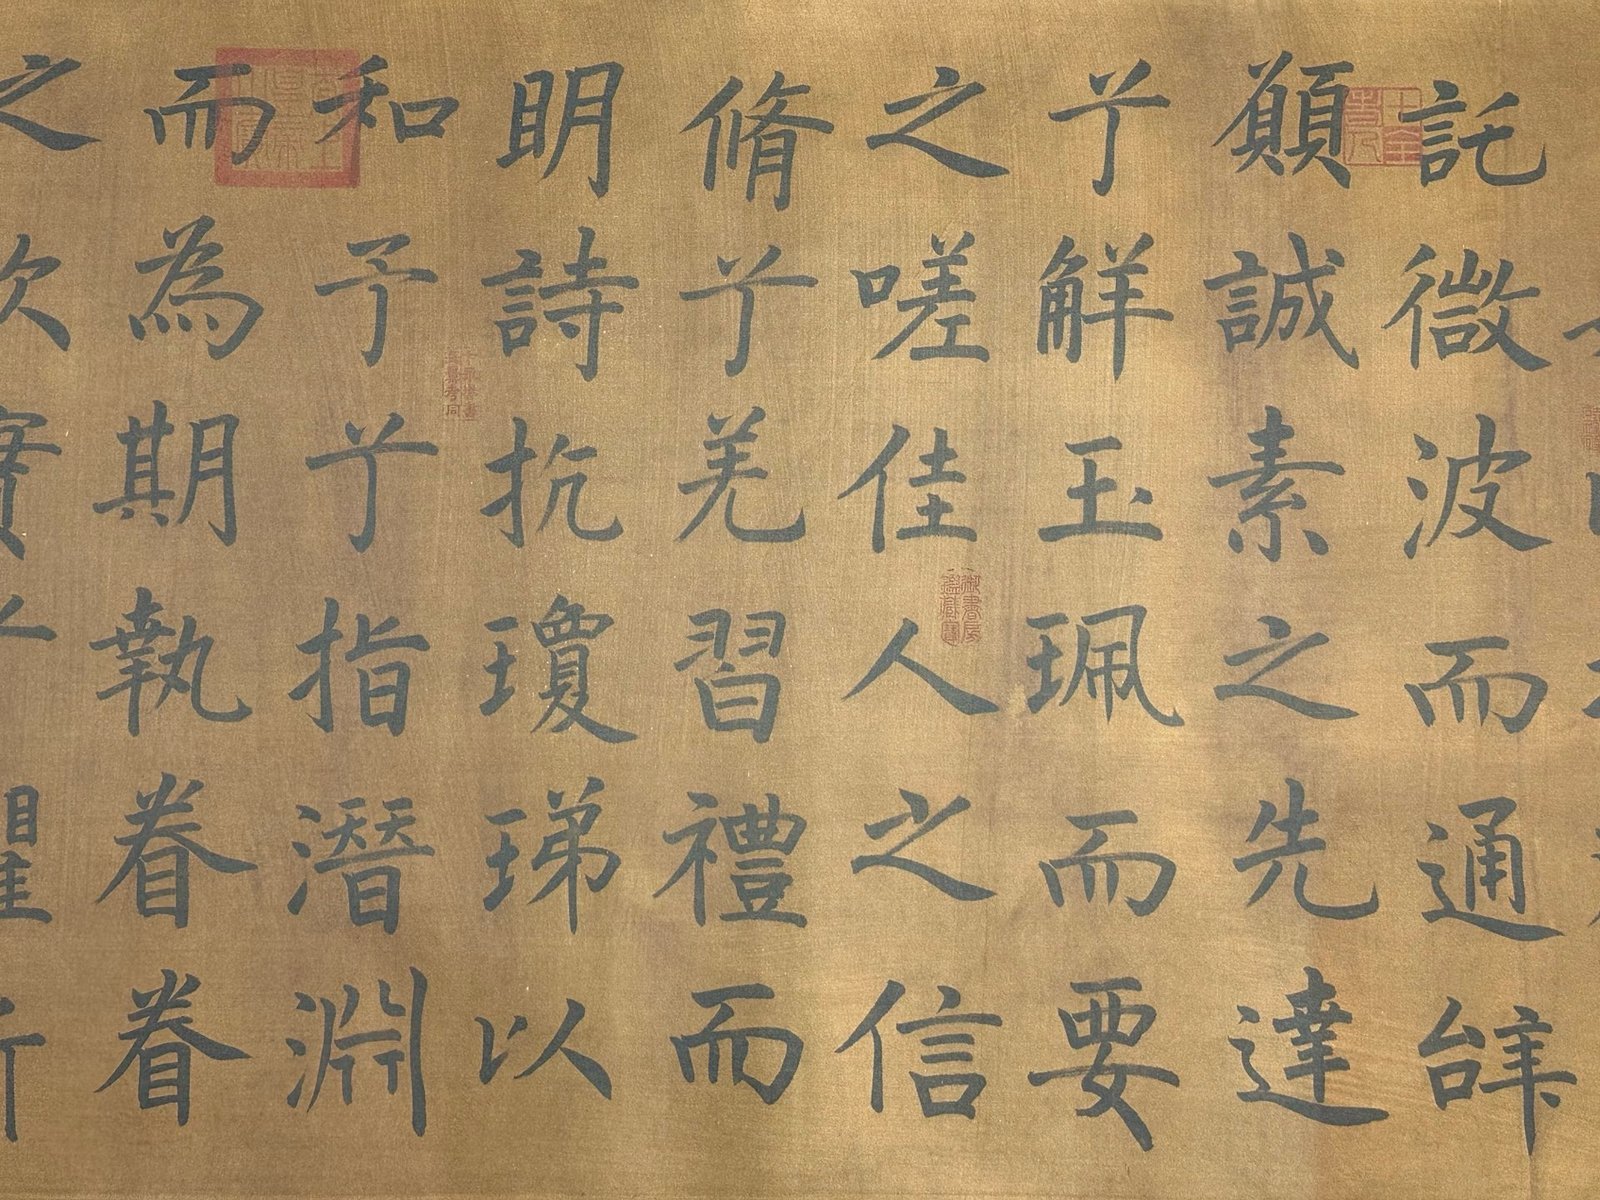 託微波而通辝
願誠素之先達
兮解玉珮而要
之嗟佳人之信
脩兮羌習禮而
明詩抗瓊珶以
和予兮指潛淵
而為期執眷眷
之款實